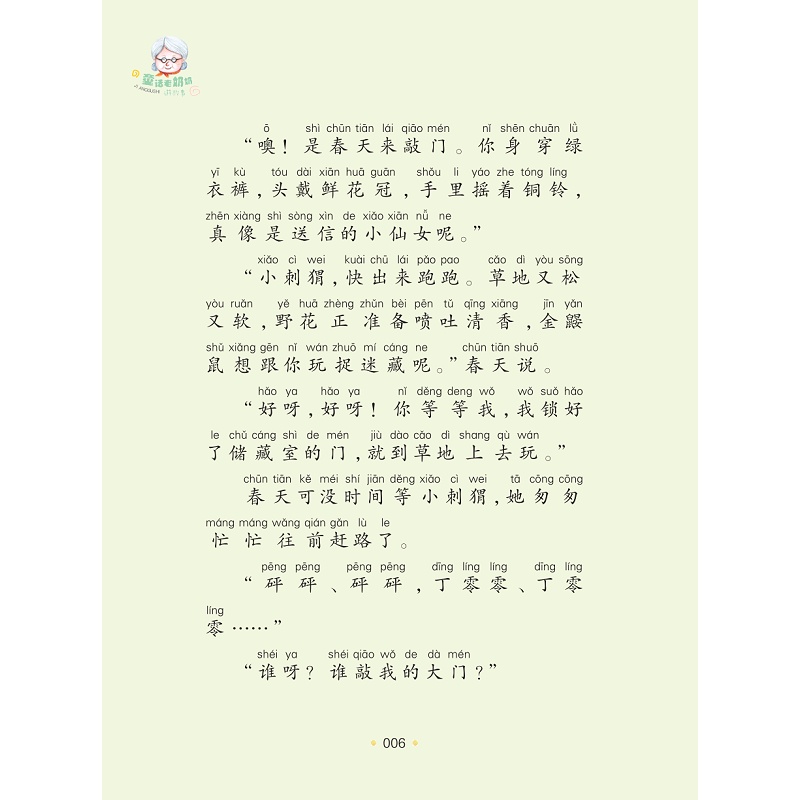 童话老奶奶
ō shì chūn tiān lái qiāo mén nǐ shēn chuān lǜ
“噢！是春天来敲门。你身穿绿
yī kù tóu dài xiān huā guān shǒu li yáo zhe tóng líng
衣裤，头戴鲜花冠，手里摇着铜铃，
zhēn xiàng shì sòng xìn de xiǎo xiān nǚ ne
真像是送信的小仙女呢。”
xiǎo cì wei kuài chū lái pǎo pao cǎo dì yòu sōng
“小刺猬，快出来跑跑。草地又松
yòu ruǎn yě huā zhèng zhǔn bèi pēn tǔ qīng xiāng jīn yǎn
又软，野花正准备喷吐清香，金鼹
shǔ xiǎng gēn nǐ wán zhuō mí cáng ne chūn tiān shuō
鼠想跟你玩捉迷藏呢。”春天说。
hǎo ya hǎo ya nǐ děng deng wǒ wǒ suǒ hǎo
“好呀，好呀！你等等我，我锁好
le chǔ cáng shì de mén jiù dào cǎo dì shang qù wán
了储藏室的门，就到草地上去玩。”
chūn tiān kě méi shí jiān děng xiǎo cì wei tā cōng cōng
春天可没时间等小刺猬，她匆匆
máng máng wǎng qián gǎn lù le
忙忙往前赶路了。
pēng pēng pēng pēng dīng líng líng dīng líng
“砰砰、砰砰，丁零零、丁零
líng
零……”
shéi ya shéi qiāo wǒ de dà mén
“谁呀？谁敲我的大门？”
006